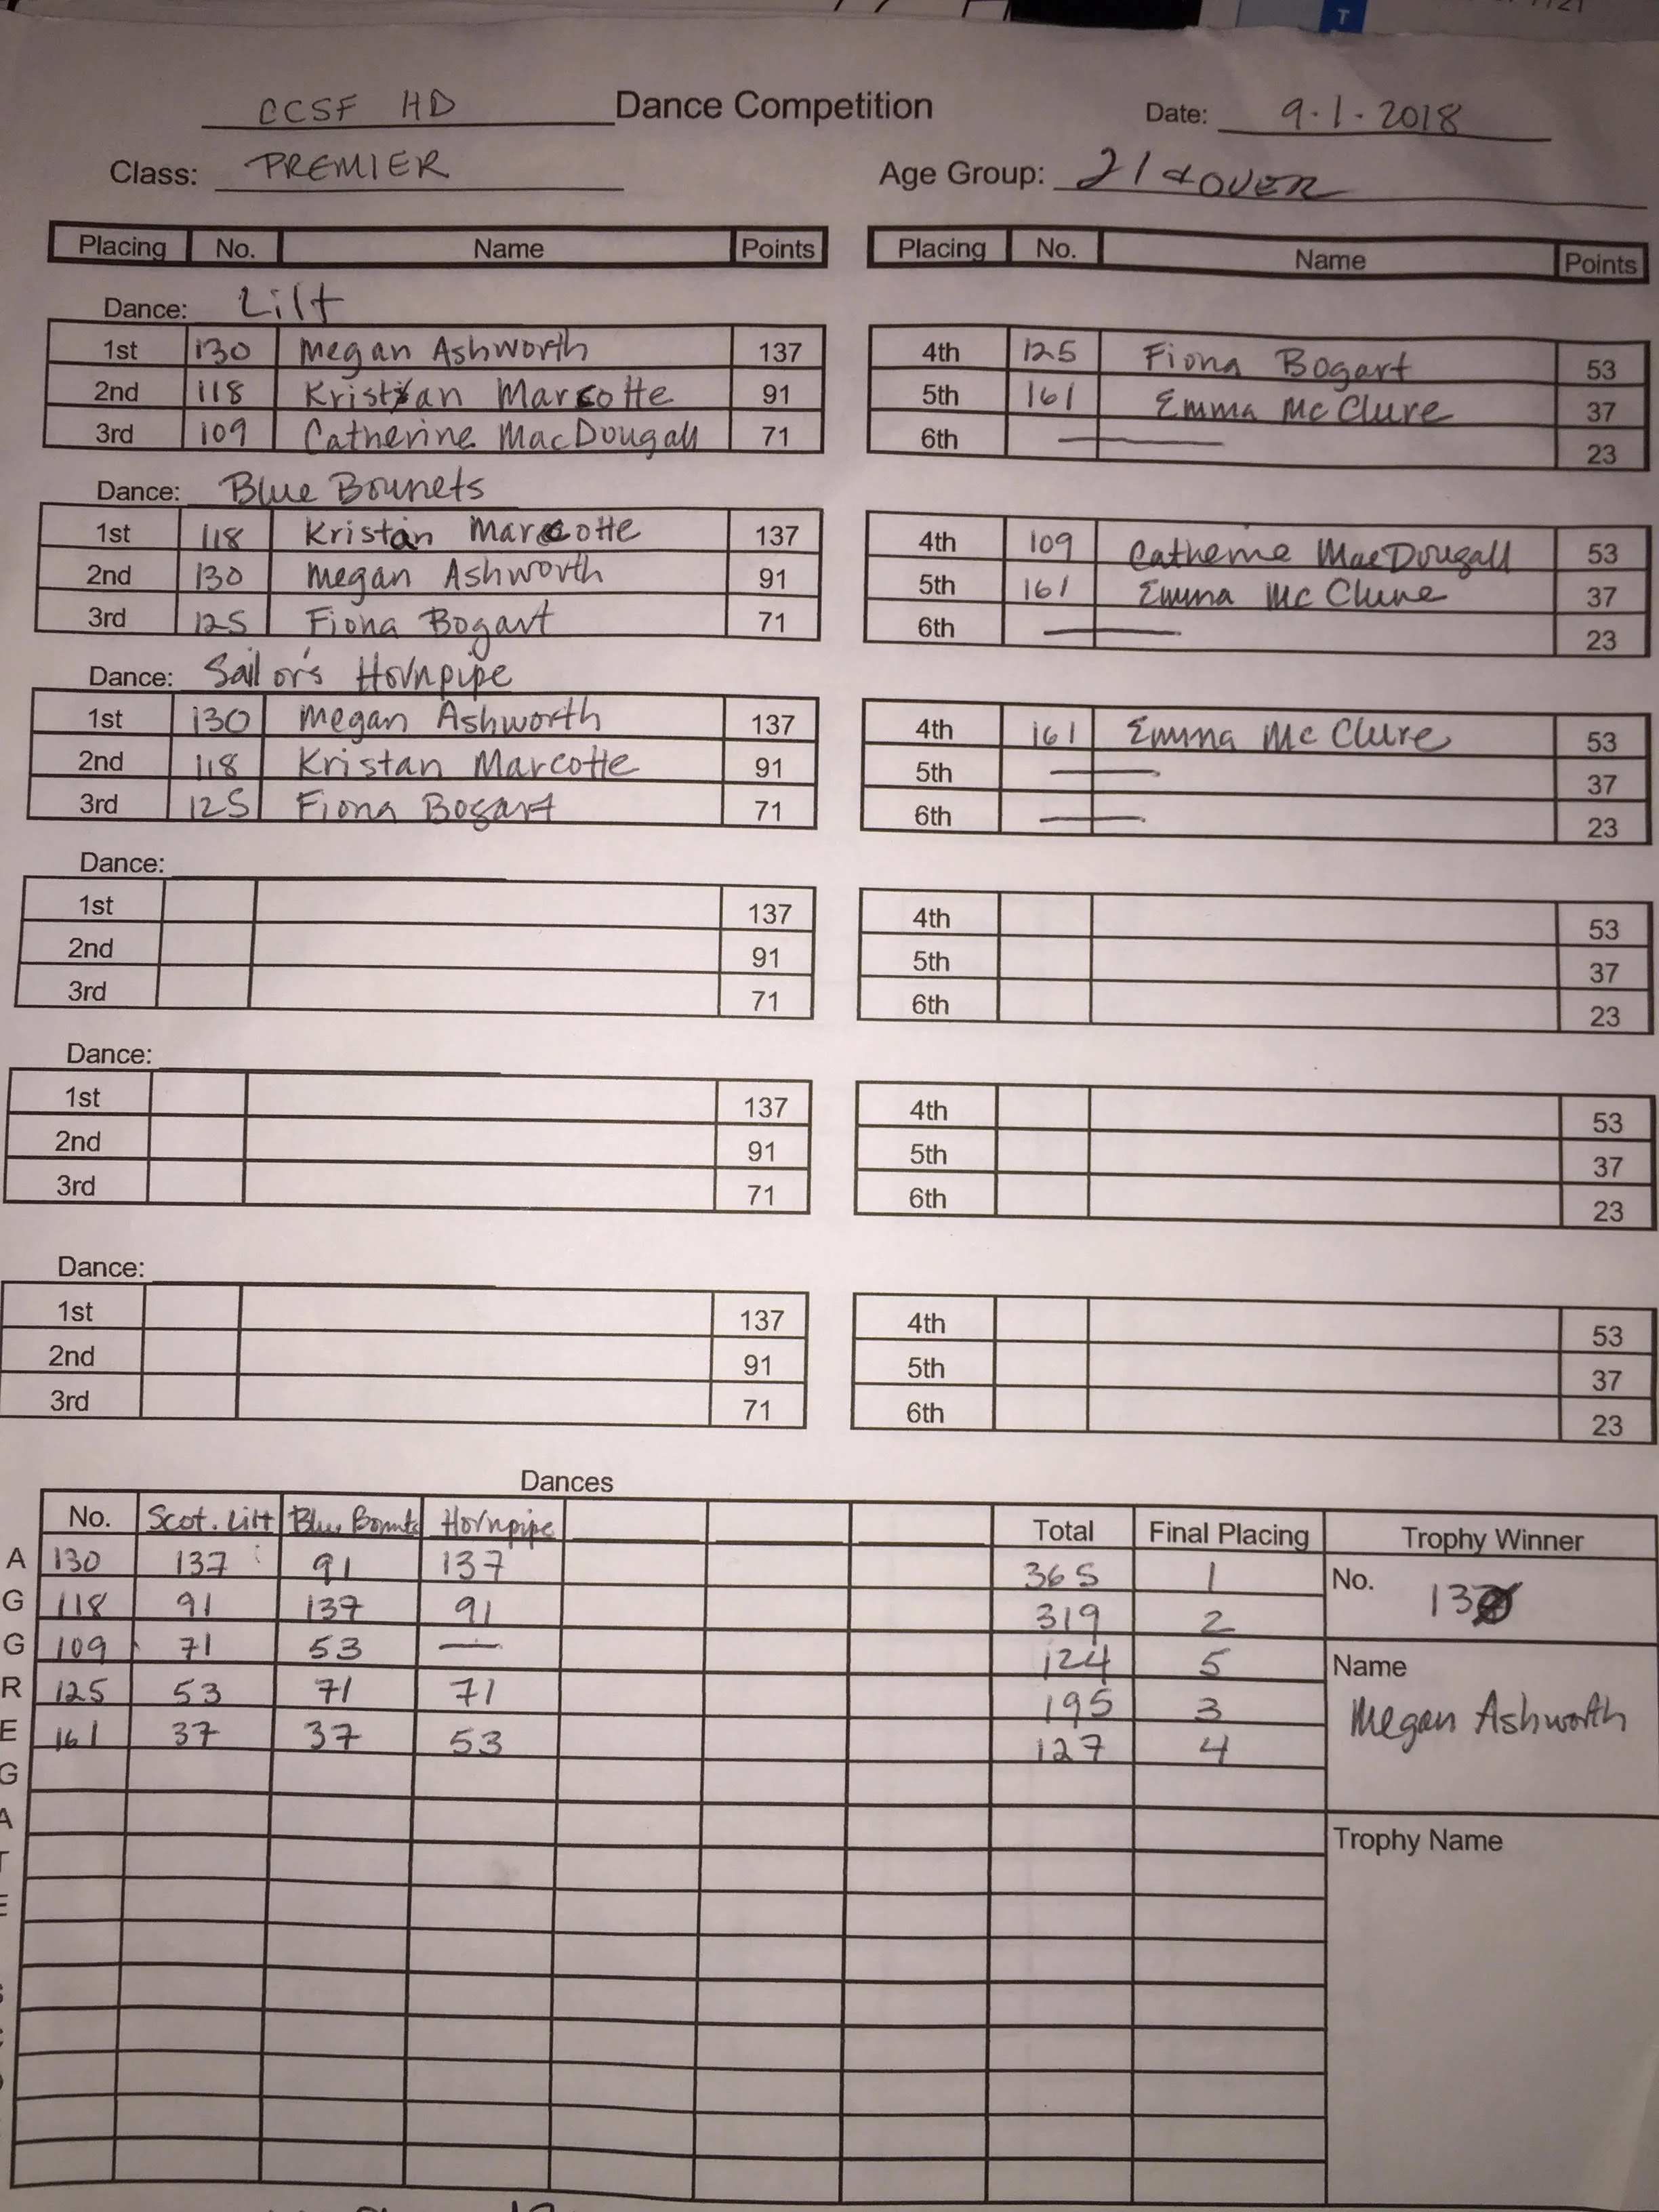 T
CCSF HD Dance Competition Date: 9.1.2018
Class: PREMIER Age Group: 21 & OVER
Placing No. Name Points Placing No. Name Points
Dance: Lilt
1st 130 Megan Ashworth 137 4th 125 Fiona Bogart 53
2nd 118 Kristan Marcotte 91 5th 161 Emma McClure 37
3rd 109 Catherine MacDougall 71 6th — 23
Dance: Blue Bonnets
1st 118 Kristan Marcotte 137 4th 109 Catherine MacDougall 53
2nd 130 Megan Ashworth 91 5th 161 Emma McClure 37
3rd 125 Fiona Bogart 71 6th — 23
Dance: Sailor's Hornpipe
1st 130 Megan Ashworth 137 4th 161 Emma McClure 53
2nd 118 Kristan Marcotte 91 5th — 37
3rd 125 Fiona Bogart 71 6th — 23
Dance:
1st 137 4th 53
2nd 91 5th 37
3rd 71 6th 23
Dance:
1st 137 4th 53
2nd 91 5th 37
3rd 71 6th 23
Dance:
1st 137 4th 53
2nd 91 5th 37
3rd 71 6th 23
Dances
No. Scot. Lilt Blue Bonnts Hornpipe Total Final Placing Trophy Winner
A 130 137 91 137 365 1 No. 130
G 118 91 137 91 319 2
G 109 71 53 — 124 5 Name
R 125 53 71 71 195 3 Megan Ashworth
E 161 37 37 53 127 4
G
A
T Trophy Name
E